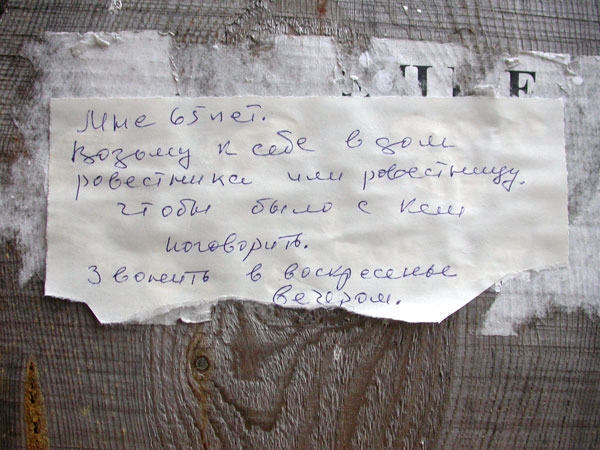 Мне 65 лет.
Возьму к себе в дом
ровестника или ровестницу.
чтобы было с кем
поговорить.
Звонить в воскресенье
вечером.